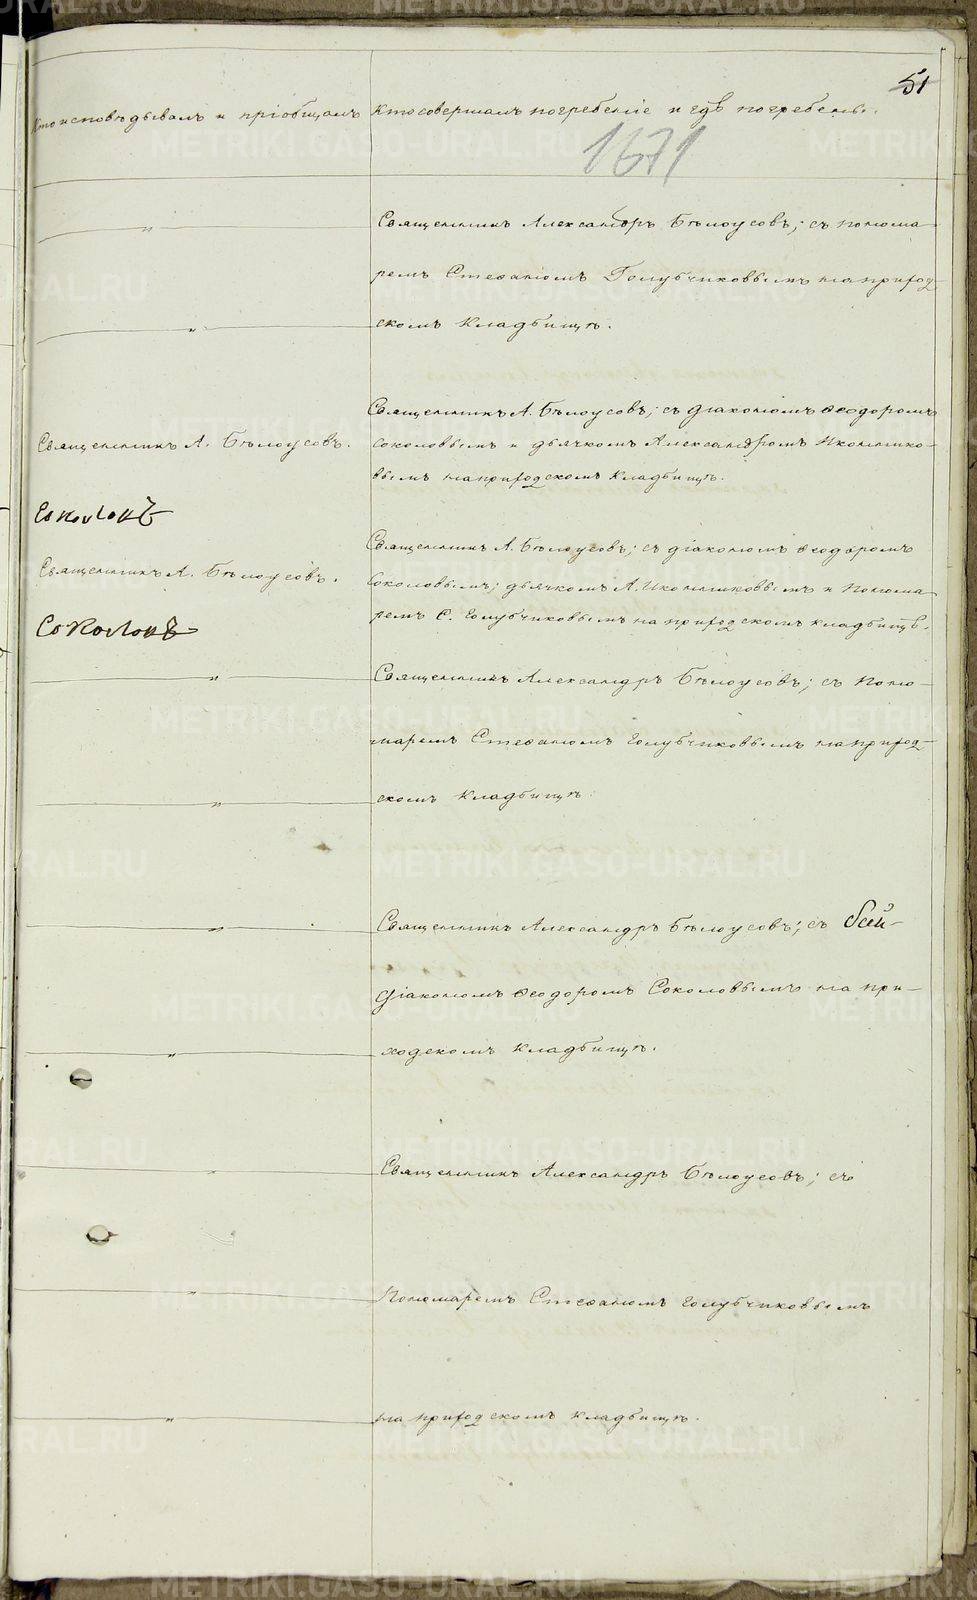 51
Кто исповѣдывалъ и пріобщалъ
Кто совершалъ погребеніе и гдѣ погребены.
1671
Священникъ Александръ Бѣлоусовъ; съ понома-
ремъ Стефаномъ Голубчиковымъ на приход-
скомъ кладбищѣ.
Священникъ А. Бѣлоусовъ.
Священникъ А. Бѣлоусовъ; съ діакономъ Ѳеодоромъ
Соколовымъ и дьячкомъ Александромъ Иконнико-
вымъ на приходскомъ кладбищѣ.
Соколовъ
Священникъ А. Бѣлоусовъ.
Священникъ А. Бѣлоусовъ; съ діакономъ Ѳеодоромъ
Соколовымъ; дьячкомъ А. Иконниковымъ и Понома
ремъ С. Голубчиковымъ на приходскомъ кладбищѣ.
Соколовъ
Священникъ Александръ Бѣлоусовъ; съ Поно-
маремъ Стефаномъ Голубчиковымъ на приход-
скомъ кладбищѣ.
Священникъ Александръ Бѣлоусовъ; съ
діакономъ Ѳеодоромъ Соколовымъ на при-
ходскомъ кладбищѣ.
Священникъ Александръ Бѣлоусовъ; съ
Пономаремъ Стефаномъ Голубчиковымъ
на приходскомъ кладбищѣ.
METRIKI.GASO-URAL.RU